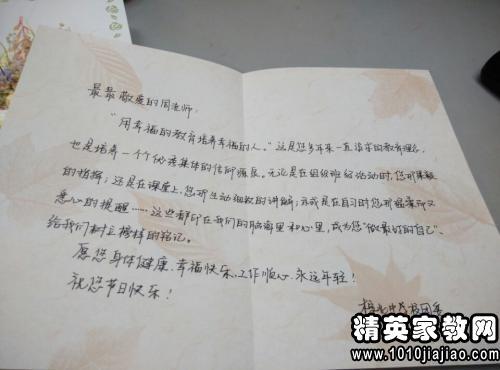 最最敬爱的周老师:
“用幸福的教育培养幸福的人。”这是您多年来一直追求的教育理念,
也是培养一个个优秀集体的信仰源泉。无论是在组织班级活动时,您那
的指挥;还是在课堂上,您那生动细致的讲解;亦或是在自习时您那
的提醒……这些都印在我们的脑海里和心里,成为您“做最好的自己”、
给我们树立榜样的铭记。
愿您身体健康、幸福快乐、工作顺心、永远年轻!
祝您节日快乐!
精英家教网
www.1010jiajiao.com